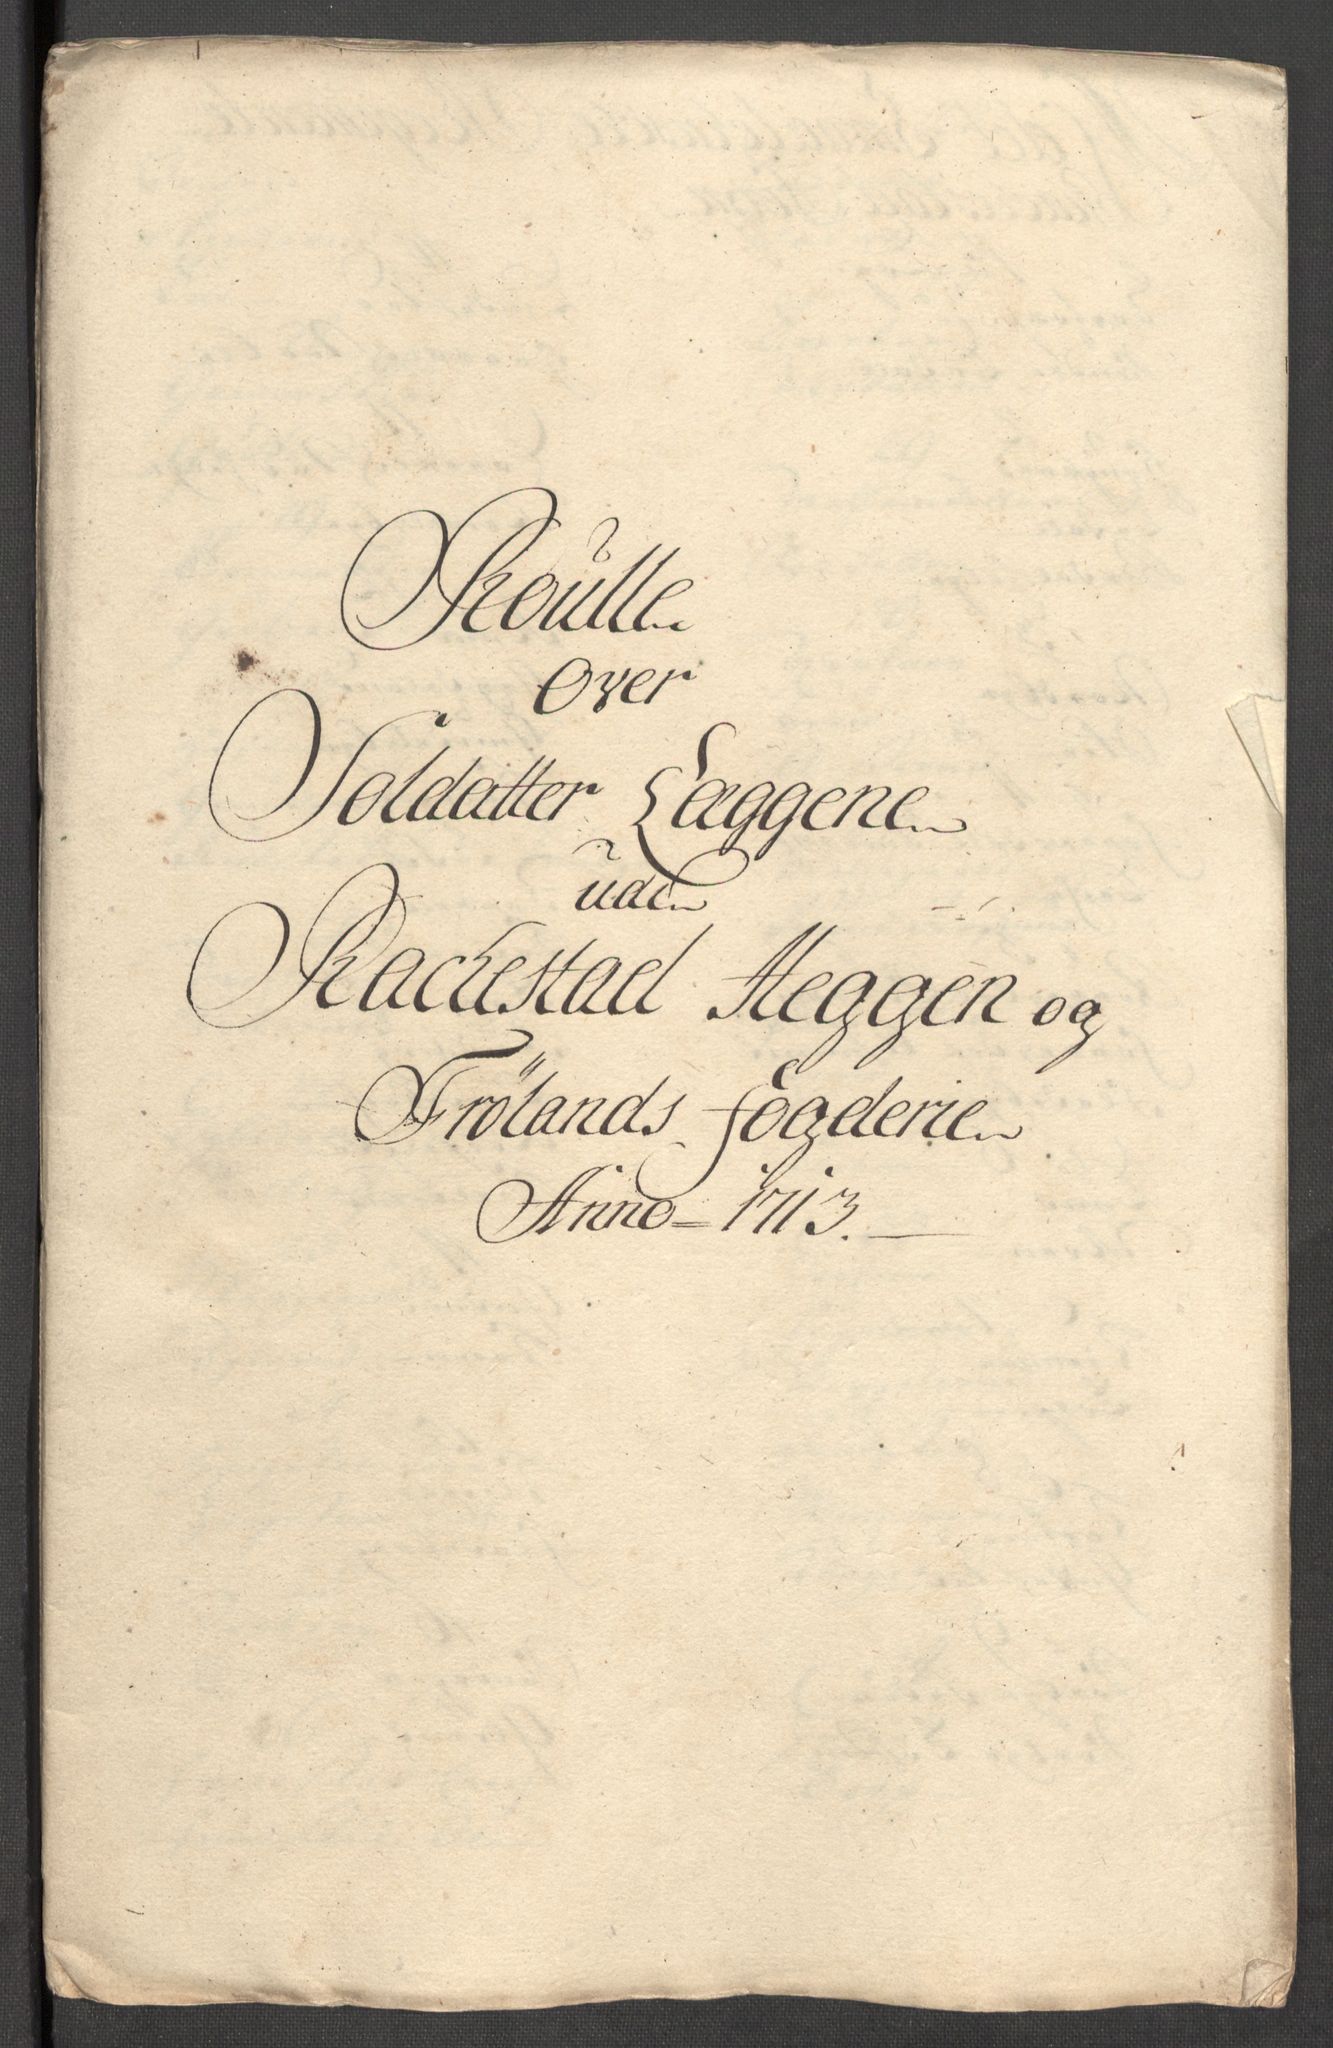 Roulle
Over
Soldatter Læggene
udi
Rackestad Heggen og
Frölands fogderie
Anno = 1713.